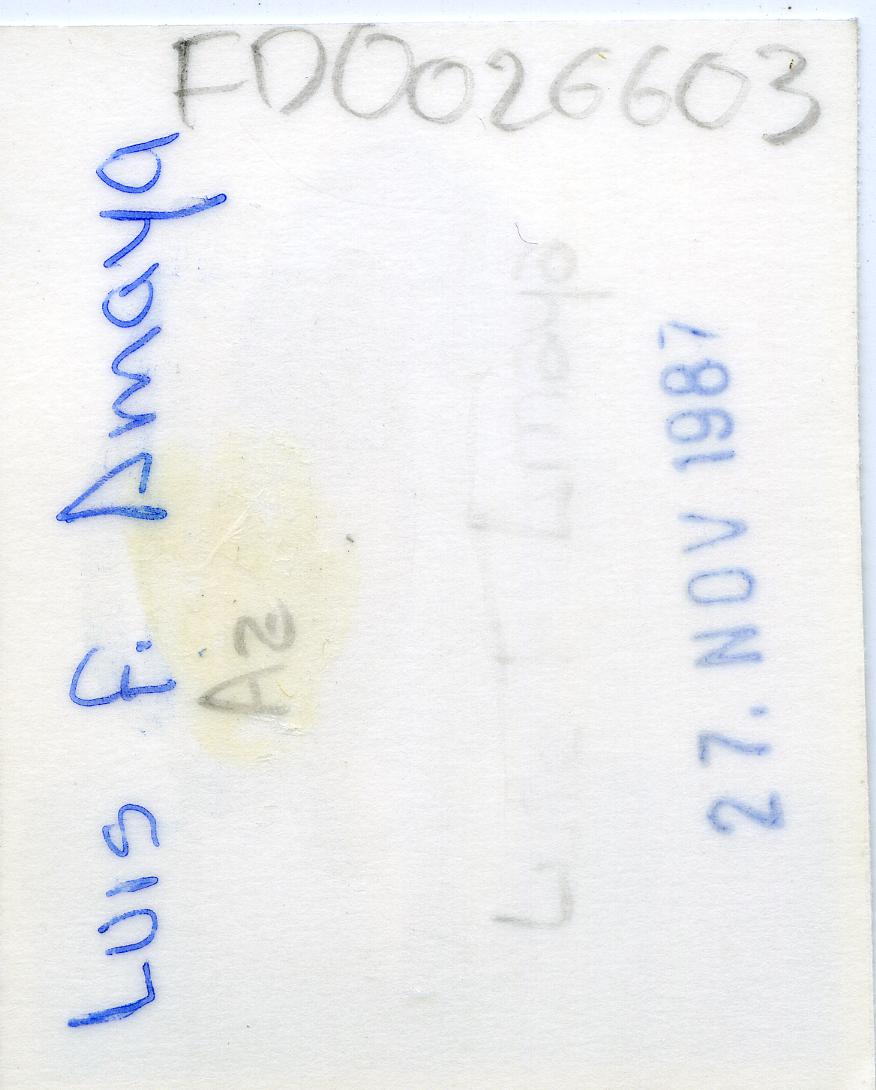 FD0026603
Luis F. Amaya
Az
27. NOV 1987